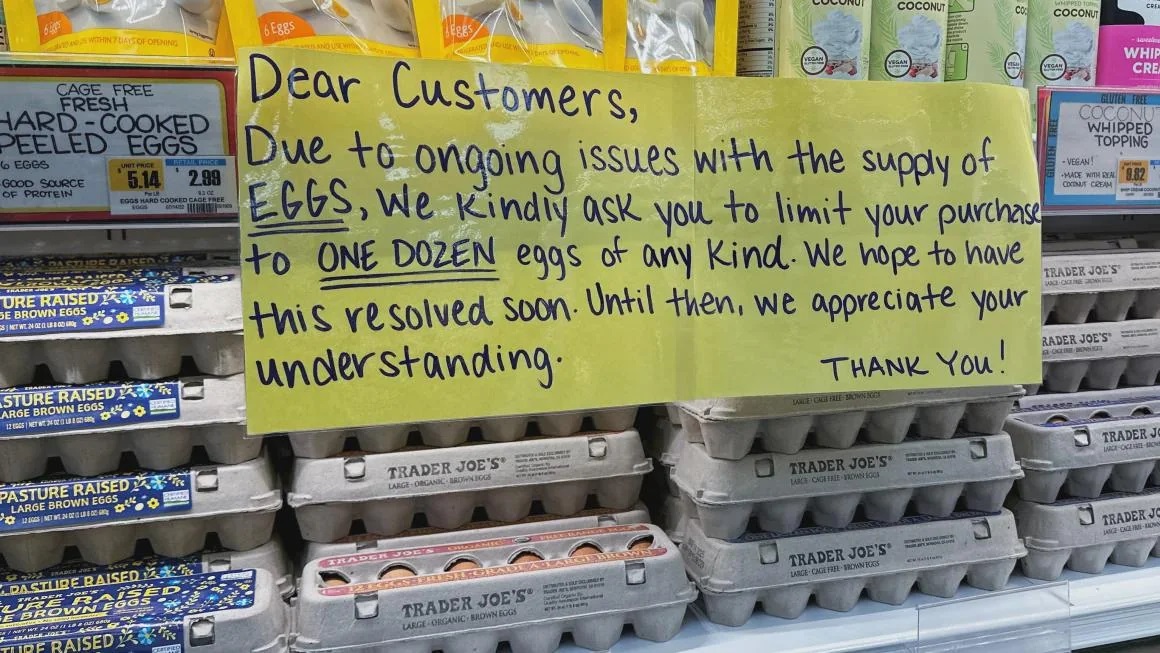 6 Eggs
6 Eggs
COCONUT
COCONUT
COCONUT
VEGAN
VEGAN
VEGAN
WHIP
CAGE FREE
FRESH
HARD-COOKED
PEELED EGGS
6 EGGS
GOOD SOURCE
OF PROTEIN
UNIT PRICE
5.14
RETAIL PRICE
$ 2.99
EGGS HARD COOKED CAGE FREE
Dear Customers,
Due to ongoing issues with the supply of
EGGS, We kindly ask you to limit your purchase
to ONE DOZEN eggs of any kind. We hope to have
this resolved soon. Until then, we appreciate your
understanding.
THANK YOU!
GLUTEN FREE
GLUTEN FREE
COCONUT
WHIPPED
TOPPING
• VEGAN!
• MADE WITH REAL
COCONUT CREAM
UNIT PRICE
9.82
PASTURE RAISED
LARGE BROWN EGGS
12 EGGS | NET WT. 24 OZ (1 LB 8 OZ) 680g
PASTURE RAISED
LARGE BROWN EGGS
12 EGGS | NET WT. 24 OZ (1 LB 8 OZ) 680g
PASTURE RAISED
TRADER JOE'S
LARGE · ORGANIC · BROWN EGGS
TRADER JOE'S ORGANIC FREE RANGE EGGS
12 EGGS · FRESH · GRADE A · LARGE BROWN
TRADER JOE'S
LARGE · ORGANIC · BROWN EGGS
LARGE · CAGE FREE · BROWN EGGS
TRADER JOE'S
LARGE · CAGE FREE · BROWN EGGS
TRADER JOE'S
LARGE · CAGE FREE · BROWN EGGS
TRADER JOE'S
LARGE · CAGE FREE · BROWN EGGS
TRADER JOE'S